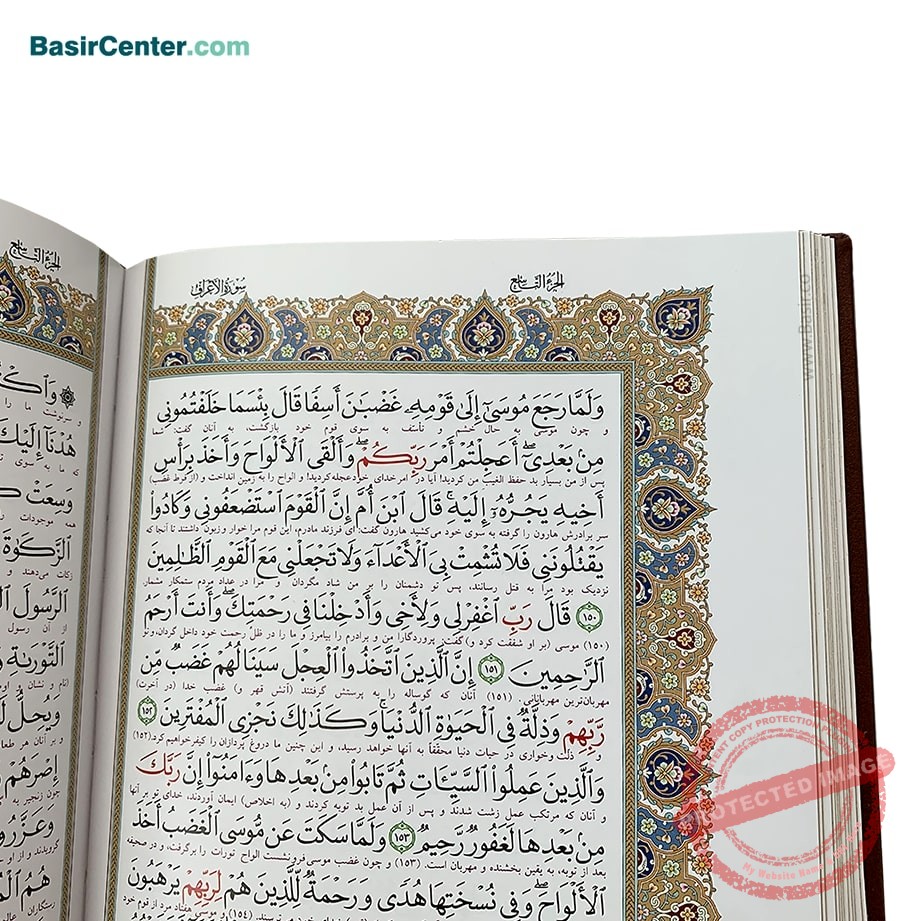 BasirCenter.com
الجزء التاسع
سورة الأعراف
الجزء التاسع
وَلَمَّا رَجَعَ مُوسَىٰٓ إِلَىٰ قَوْمِهِۦ غَضْبَٰنَ أَسِفًا قَالَ بِئْسَمَا خَلَفْتُمُونِي
و چون موسی به حال خشم و تأسف به سوی قوم خود بازگشت، به آنان گفت: شما
مِنۢ بَعْدِيٓ ۖ أَعَجِلْتُمْ أَمْرَ رَبِّكُمْ ۖ وَأَلْقَى ٱلْأَلْوَاحَ وَأَخَذَ بِرَأْسِ
پس از من بسیار بد حفظ الغیب من کردید! آیا در امر خدای خود عجله کردید! و الواح را به زمین انداخت و (از فرط غضب)
أَخِيهِ يَجُرُّهُۥٓ إِلَيْهِ ۚ قَالَ ٱبْنَ أُمَّ إِنَّ ٱلْقَوْمَ ٱسْتَضْعَفُونِي وَكَادُوا
سر برادرش هارون را گرفته به سوی خود می‌کشید هارون گفت: ای فرزند مادرم، این قوم مرا خوار و زبون داشتند تا آنجا که
يَقْتُلُونَنِي فَلَا تُشْمِتْ بِيَ ٱلْأَعْدَآءَ وَلَا تَجْعَلْنِي مَعَ ٱلْقَوْمِ ٱلظَّٰلِمِينَ
نزدیک بود مرا به قتل رسانند، پس تو دشمنان را بر من شاد مگردان و مرا در عداد مردم ستمکار مشمار
١٥٠ قَالَ رَبِّ ٱغْفِرْ لِي وَلِأَخِي وَأَدْخِلْنَا فِي رَحْمَتِكَ ۖ وَأَنتَ أَرْحَمُ
(۱۵۰) موسی (بر او شفقت کرد و) گفت: پروردگارا من و برادرم را بیامرز و ما را در ظل رحمت خود داخل گردان، و تو
ٱلرَّٰحِمِينَ ١٥١ إِنَّ ٱلَّذِينَ ٱتَّخَذُوا ٱلْعِجْلَ سَيَنَالُهُمْ غَضَبٌ مِّن
مهربان‌ترین مهربانانی. (۱۵۱) آنان که گوساله را به پرستش گرفتند (آتش قهر و) غضب خدا (در آخرت)
رَّبِّهِمْ وَذِلَّةٌ فِي ٱلْحَيَوٰةِ ٱلدُّنْيَا ۚ وَكَذَٰلِكَ نَجْزِي ٱلْمُفْتَرِينَ ١٥٢
و ذلت و خواری در حیات دنیا محققاً به آنها خواهد رسید، و این چنین ما دروغ پردازان را کیفر خواهیم کرد (۱۵۲)
وَٱلَّذِينَ عَمِلُوا ٱلسَّيِّـَٔاتِ ثُمَّ تَابُوا مِنۢ بَعْدِهَا وَءَامَنُوٓا إِنَّ رَبَّكَ
و آنان که مرتکب عمل زشت شدند و پس از آن عمل بد توبه کردند و (به اخلاص) ایمان آوردند، خدای تو بر آنها
مِنۢ بَعْدِهَا لَغَفُورٌ رَّحِيمٌ ١٥٣ وَلَمَّا سَكَتَ عَن مُّوسَى ٱلْغَضَبُ أَخَذَ
بعد از توبه، به یقین بخشنده و مهربان است. (۱۵۳) و چون غضب موسی فرونشست الواح تورات را برگرفت، و در صحیفه
ٱلْأَلْوَاحَ ۖ وَفِي نُسْخَتِهَا هُدًى وَرَحْمَةٌ لِّلَّذِينَ هُمْ لِرَبِّهِمْ يَرْهَبُونَ
هُدْنَآ إِلَيْكَ
وَسِعَتْ
ٱلزَّكَوٰةَ
ٱلرَّسُولَ
ٱلتَّوْرَىٰةِ
وَيُحِلُّ
إِصْرَهُمْ
وَعَزَّرُو
هُمُ
www.Basir.co
CONTENT COPY PROTECTION
PROTECTED IMAGE
My Website Name